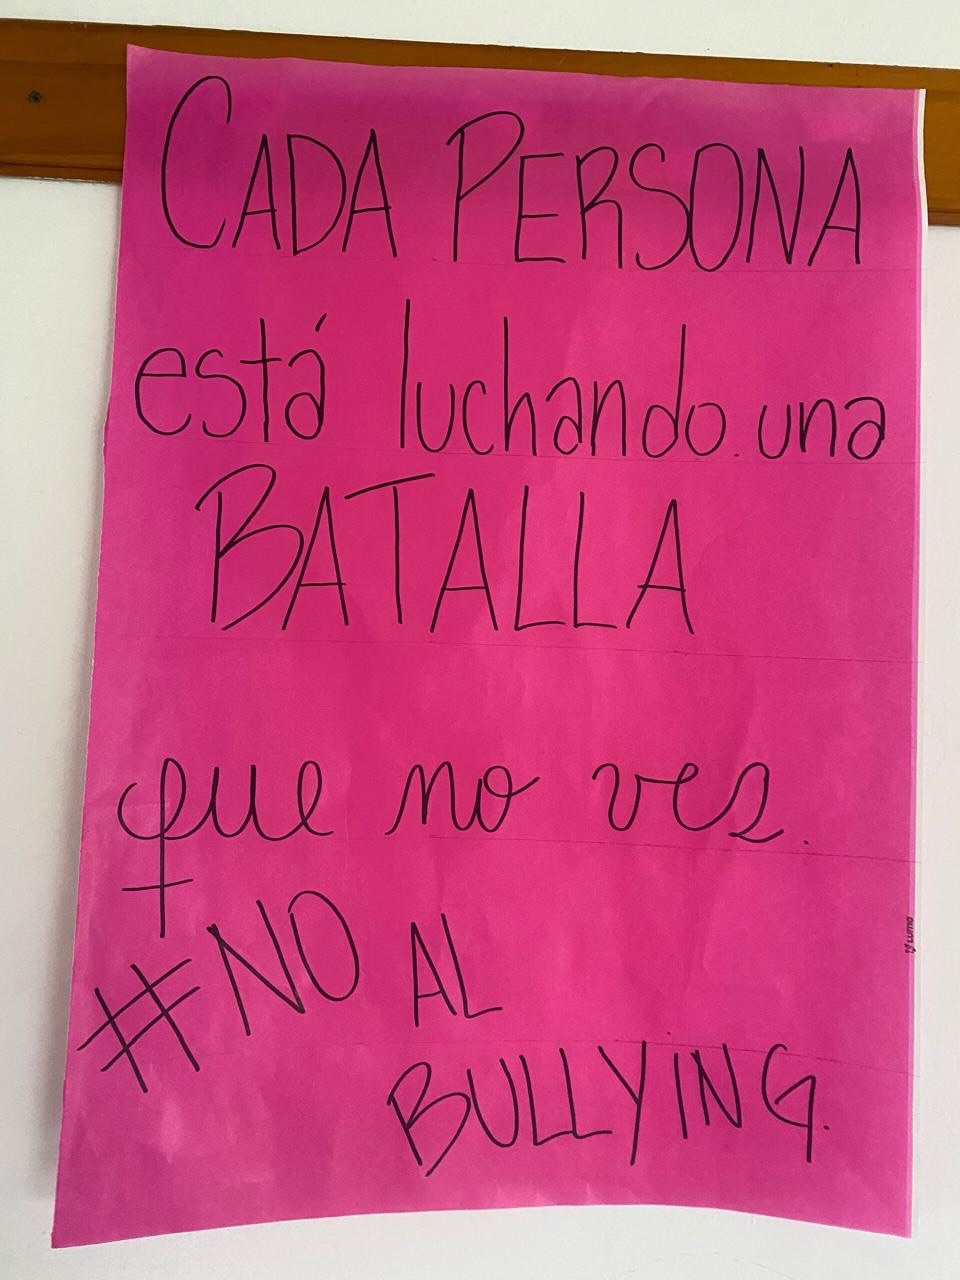 CADA PERSONA
está luchando una
BATALLA
que no ves.
#NO AL
BULLYING.